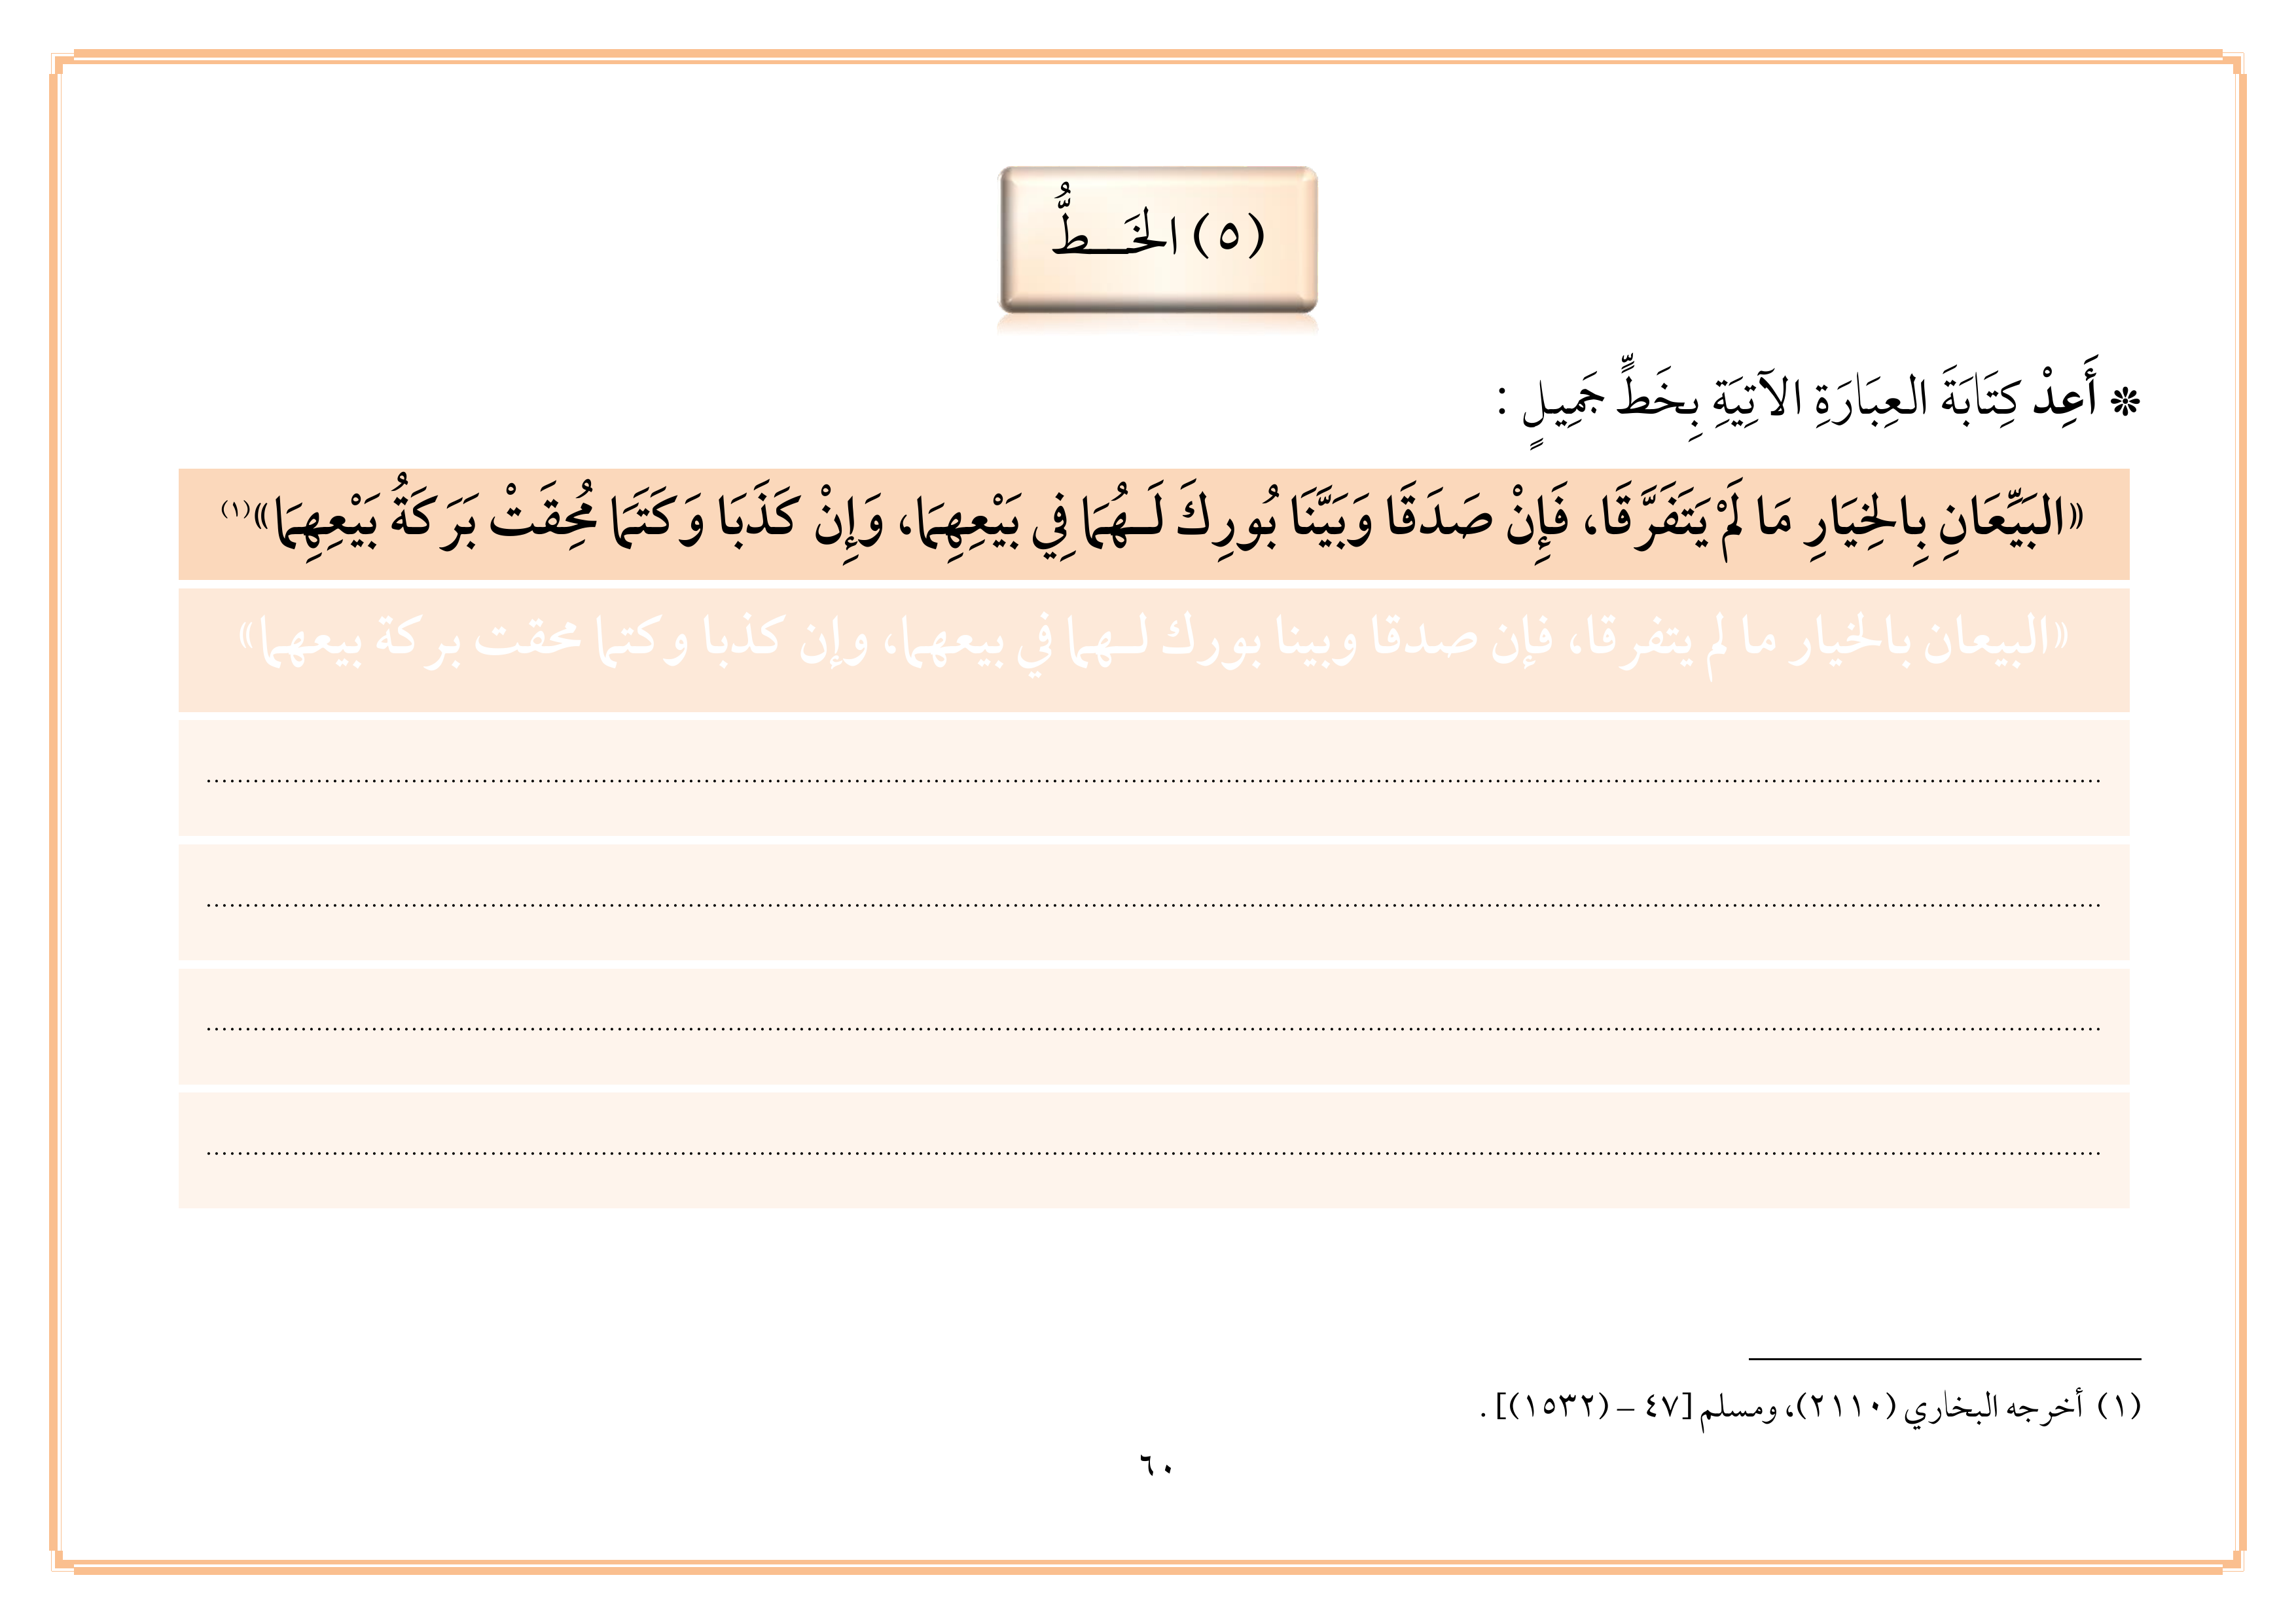 (٥) الخَـــطُّ
❊ أَعِدْ كِتَابَةَ العِبَارَةِ الآتِيَةِ بِخَطٍّ جَمِيلٍ :
«البَيِّعَانِ بِالخِيَارِ مَا لَمْ يَتَفَرَّقَا، فَإِنْ صَدَقَا وَبَيَّنَا بُورِكَ لَـهُمَا فِي بَيْعِهِمَا، وَإِنْ كَذَبَا وَكَتَمَا مُحِقَتْ بَرَكَةُ بَيْعِهِمَا»(١)
«البيعان بالخيار ما لم يتفرقا، فإن صدقا وبينا بورك لـهما في بيعهما، وإن كذبا وكتما محقت بركة بيعهما»
(١) أخرجه البخاري (٢١١٠)، ومسلم [٤٧ – (١٥٣٢)] .
٦٠